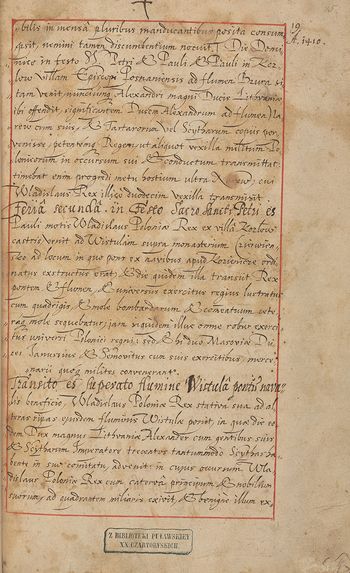 19
A. 1410.
bilis in mensâ pluribus manducantibus posita consum
psit, nemini tamen discumbentium nocuit. Die Domi
nico in festo SS. Petri & Pauli in Koz
lovo villam Episcopi Posnaniensis ad flumen Bzura si
tam venit nuncius Alexandri magni Ducis Lithvaniæ
ibi offendit, significantem Ducem Alexandrum ad flumen Na
rew cum suis, & Tartarorum vel Scytharum copijs per
venisse, petentem Regem, ut aliquot vexilla militum Po
lonicorum in occursum sui & conductum transmittat
timebat enim progredi metu hostium ultra Narew, cui
Wladislaus Rex illicò duodecim vexilla transmisit
Feriâ secundâ in festo Sacro Sancti Petri et
Pauli motis Wladislaus Poloniæ Rex ex villâ Kozlow
castris venit ad Wistulam supra monasterium Czirwien
sko ad locum in quo pons ex navibus apud Kozienice ordi
natus exstructus erat, & die quidem illa transijt Rex
pontem & flumen, & universus exercitus regius lustratus
cum quadrigis, & mole bombardarum & comeatuum cete
raq mole sequebatur, jam siquidem illuc omne robur exerci
tus universi Polonici regni; sed & bi duo Masoviæ Du
ces Janussius & Semovitus cum suis exercitibus, merce
narij quoq milites convenerant.
Transito et superato flumine Wistula pontis nava
lis beneficio, Wladislaus Poloniæ Rex stativa sua ad al
teras ripas ejusdem fluminis Wistulæ ponit, in quæ die eo
dem Dux magnus Lithvaniæ Alexander cum gentibus suis
& Scytharum Imperatore trecentos tantummodo Scythas ha
bente in suo comitatu, advenit: in cujus occursum Wla
dislaus Poloniæ Rex cum catervâ principum & nobilium
suorum, ad quadrantem miliaris exivit, & benigne illum ex
Z BIBLIOTEKI PUŁAWSKIEJ
XX. CZARTORYSKICH.